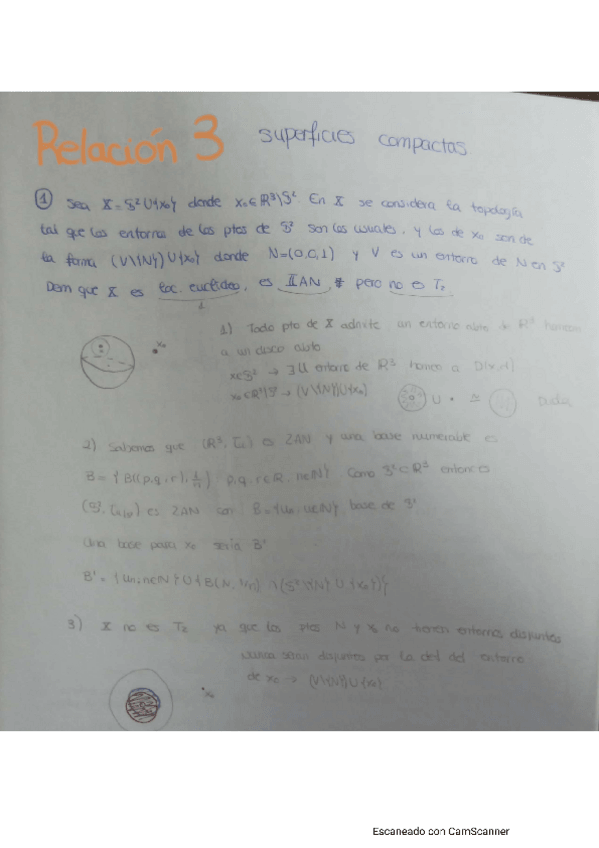 Relación 3 superficies compactas
① Sea X = S² U {x₀} donde x₀ ∈ R³\S² En X se considera la topología
tal que los entornos de los ptos de S² son los usuales, y los de x₀ son de
la forma (V\{N}) U {x₀} donde N=(0,0,1) y V es un entorno de N en S²
Dem que X es loc. euclídeo, es IIAN pero no es T₂
1) Todo pto de X admite un entorno abto de R³ homeo
a un disco abto
x∈S² → ∃U entorno de R³ homeo a D(x,r)
x₀∈R³\S² → (V\{N})U{x₀} U ≅ Duda
2) Sabemos que (R³, Tᵤ) es 2AN y una base numerable es
B = { B((p,q,r), 1/n) p,q,r∈Q, n∈N} Como S²⊂R³ entonces
es 2AN con B={Uₙ, n∈N} base de S²
Una base para x₀ sería B'
B' = {Uₙ: n∈N} U {B(N, 1/n) ∩ (S²\{N} U {x₀})}
3) X no es T₂ ya que los ptos N y x₀ no tienen entornos disjuntos
nunca serán disjuntos por la def del entorno
de x₀ → (V\{N})U{x₀}
x₀
x₀
Escaneado con CamScanner